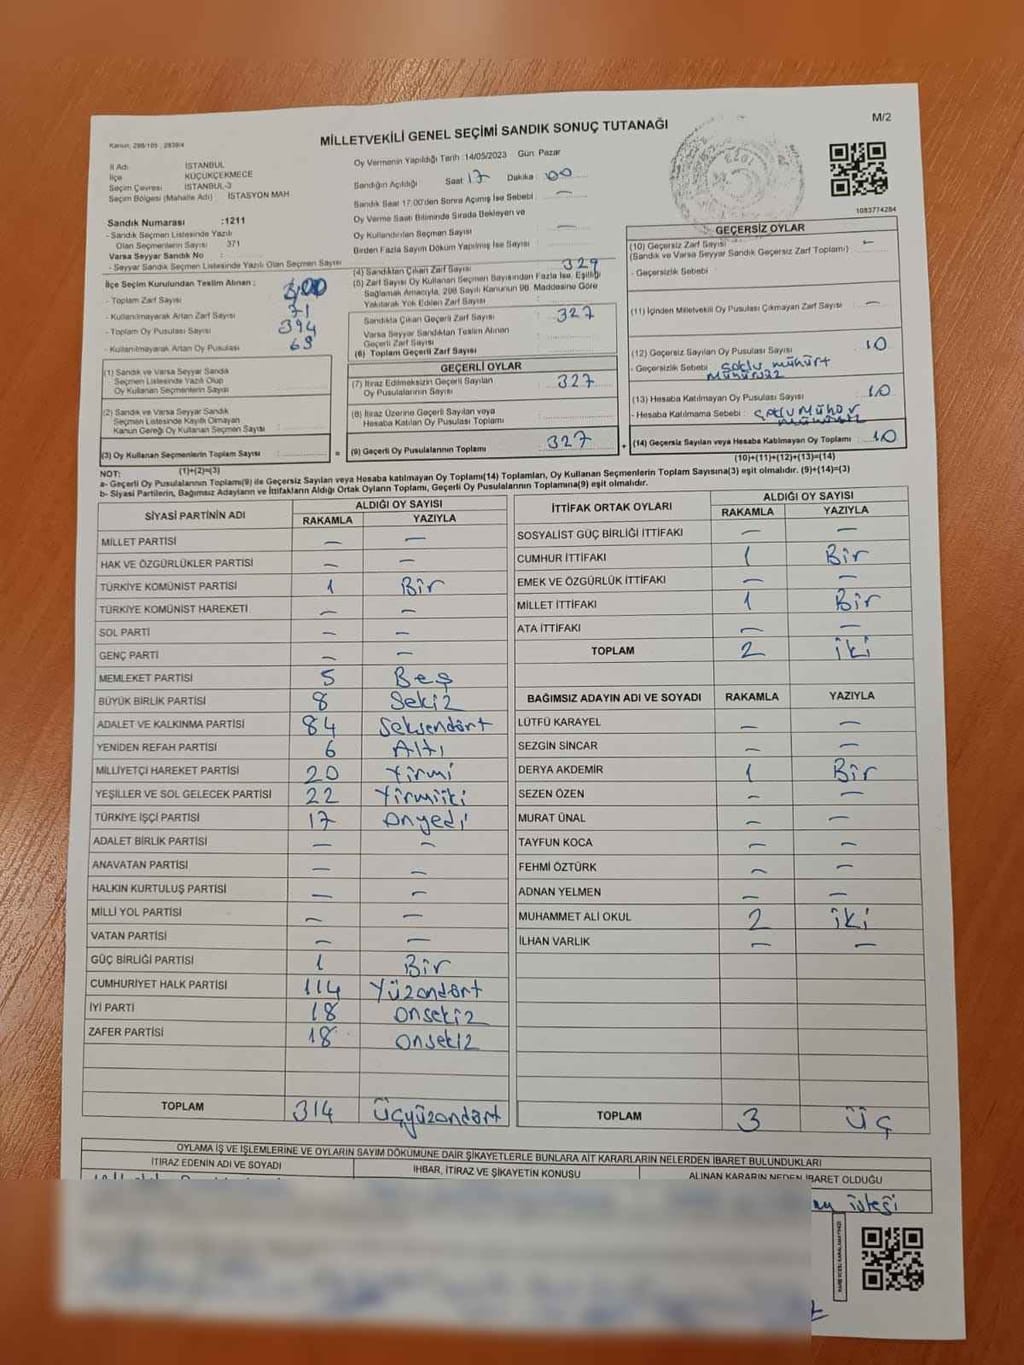 M/2
Kanun, 298/105 , 2839/4
MİLLETVEKİLİ GENEL SEÇİMİ SANDIK SONUÇ TUTANAĞI
İl Adı İSTANBUL
İlçe KÜÇÜKÇEKMECE
Seçim Çevresi İSTANBUL-3
Seçim Bölgesi (Mahalle Adı) : İSTASYON MAH
Sandık Numarası :1211
- Sandık Seçmen Listesinde Yazılı
Olan Seçmenlerin Sayısı 371
Varsa Seyyar Sandık No :
- Seyyar Sandık Seçmen Listesinde Yazılı Olan Seçmen Sayısı
Oy Vermenin Yapıldığı Tarih :14/05/2023 Gün: Pazar
Sandığın Açıldığı Saat 17 Dakika 00
Sandık Saat 17.00'den Sonra Açılmış İse Sebebi : —
Oy Verme Saati Bitiminde Sırada Bekleyen ve
Oy Kullandırılan Seçmen Sayısı : —
Birden Fazla Sayım Dökümü Yapılmış İse Sayısı :
1083774284
İlçe Seçim Kurulundan Teslim Alınan ;
- Toplam Zarf Sayısı : 400
- Kullanılmayarak Artan Zarf Sayısı : 71
- Toplam Oy Pusulası Sayısı : 394
- Kullanılmayarak Artan Oy Pusulası : 69
(1) Sandık ve Varsa Seyyar Sandık
Seçmen Listesinde Yazılı Olup
Oy Kullanan Seçmenlerin Sayısı :
(2) Sandık ve Varsa Seyyar Sandık
Seçmen Listesinde Kayıtlı Olmayan
Kanun Gereği Oy Kullanan Seçmen Sayısı :
(3) Oy Kullanan Seçmenlerin Toplam Sayısı :
(1)+(2)=(3)
(4) Sandıktan Çıkan Zarf Sayısı : 329
(5) Zarf Sayısı Oy Kullanan Seçmen Sayısından Fazla İse, Eşitliği
Sağlamak Amacıyla, 298 Sayılı Kanunun 98. Maddesine Göre
Yakılarak Yok Edilen Zarf Sayısı :
Sandıkta Çıkan Geçerli Zarf Sayısı : 327
Varsa Seyyar Sandıktan Teslim Alınan
Geçerli Zarf Sayısı :
(6) Toplam Geçerli Zarf Sayısı :
GEÇERLİ OYLAR
(7) İtiraz Edilmeksizin Geçerli Sayılan
Oy Pusulalarının Sayısı : 327
(8) İtiraz Üzerine Geçerli Sayılan veya
Hesaba Katılan Oy Pusulası Toplamı :
= (9) Geçerli Oy Pusulalarının Toplamı : 327 +
GEÇERSİZ OYLAR
(10) Geçersiz Zarf Sayısı : —
(Sandık ve Varsa Seyyar Sandık Geçersiz Zarf Toplamı)
- Geçersizlik Sebebi :
(11) İçinden Milletvekili Oy Pusulası Çıkmayan Zarf Sayısı : —
(12) Geçersiz Sayılan Oy Pusulası Sayısı : 10
- Geçersizlik Sebebi : çoklu mühürt
Mühürsüz
(13) Hesaba Katılmayan Oy Pusulası Sayısı : 10
- Hesaba Katılmama Sebebi : çoklu Mühür
mühürsüz
(14) Geçersiz Sayılan veya Hesaba Katılmayan Oy Toplamı : 10
(10)+(11)+(12)+(13)=(14)
NOT:
a- Geçerli Oy Pusulalarının Toplamı(9) ile Geçersiz Sayılan veya Hesaba katılmayan Oy Toplamı(14) Toplamları, Oy Kullanan Seçmenlerin Toplam Sayısına(3) eşit olmalıdır. (9)+(14)=(3)
b- Siyasi Partilerin, Bağımsız Adayların ve İttifakların Aldığı Ortak Oyların Toplamı, Geçerli Oy Pusulalarının Toplamına(9) eşit olmalıdır.
SİYASİ PARTİNİN ADI ALDIĞI OY SAYISI
RAKAMLA YAZIYLA
MİLLET PARTİSİ — —
HAK VE ÖZGÜRLÜKLER PARTİSİ — —
TÜRKİYE KOMÜNİST PARTİSİ 1 Bir
TÜRKİYE KOMÜNİST HAREKETİ — —
SOL PARTİ — —
GENÇ PARTİ — —
MEMLEKET PARTİSİ 5 Beş
BÜYÜK BİRLİK PARTİSİ 8 Sekiz
ADALET VE KALKINMA PARTİSİ 84 Seksendört
YENİDEN REFAH PARTİSİ 6 Altı
MİLLİYETÇİ HAREKET PARTİSİ 20 Yirmi
YEŞİLLER VE SOL GELECEK PARTİSİ 22 Yirmiiki
TÜRKİYE İŞÇİ PARTİSİ 17 Onyedi
ADALET BİRLİK PARTİSİ — —
ANAVATAN PARTİSİ — —
HALKIN KURTULUŞ PARTİSİ — —
MİLLİ YOL PARTİSİ — —
VATAN PARTİSİ — —
GÜÇ BİRLİĞİ PARTİSİ 1 Bir
CUMHURİYET HALK PARTİSİ 114 Yüzondört
İYİ PARTİ 18 onsekiz
ZAFER PARTİSİ 18 onsekiz
TOPLAM 314 Üçyüzondört
İTTİFAK ORTAK OYLARI ALDIĞI OY SAYISI
RAKAMLA YAZIYLA
SOSYALİST GÜÇ BİRLİĞİ İTTİFAKI — —
CUMHUR İTTİFAKI 1 Bir
EMEK VE ÖZGÜRLÜK İTTİFAKI — —
MİLLET İTTİFAKI 1 Bir
ATA İTTİFAKI — —
TOPLAM 2 iki
BAĞIMSIZ ADAYIN ADI VE SOYADI RAKAMLA YAZIYLA
LÜTFÜ KARAYEL — —
SEZGİN SİNCAR — —
DERYA AKDEMİR 1 Bir
SEZEN ÖZEN — —
MURAT ÜNAL — —
TAYFUN KOCA — —
FEHMİ ÖZTÜRK — —
ADNAN YELMEN — —
MUHAMMET ALİ OKUL 2 iki
İLHAN VARLIK — —
TOPLAM 3 üç
OYLAMA İŞ VE İŞLEMLERİNE VE OYLARIN SAYIM DÖKÜMÜNE DAİR ŞİKAYETLERLE BUNLARA AİT KARARLARIN NELERDEN İBARET BULUNDUKLARI
İTİRAZ EDENİN ADI VE SOYADI İHBAR, İTİRAZ VE ŞİKAYETİN KONUSU ALINAN KARARIN NEDEN İBARET OLDUĞU
isteği